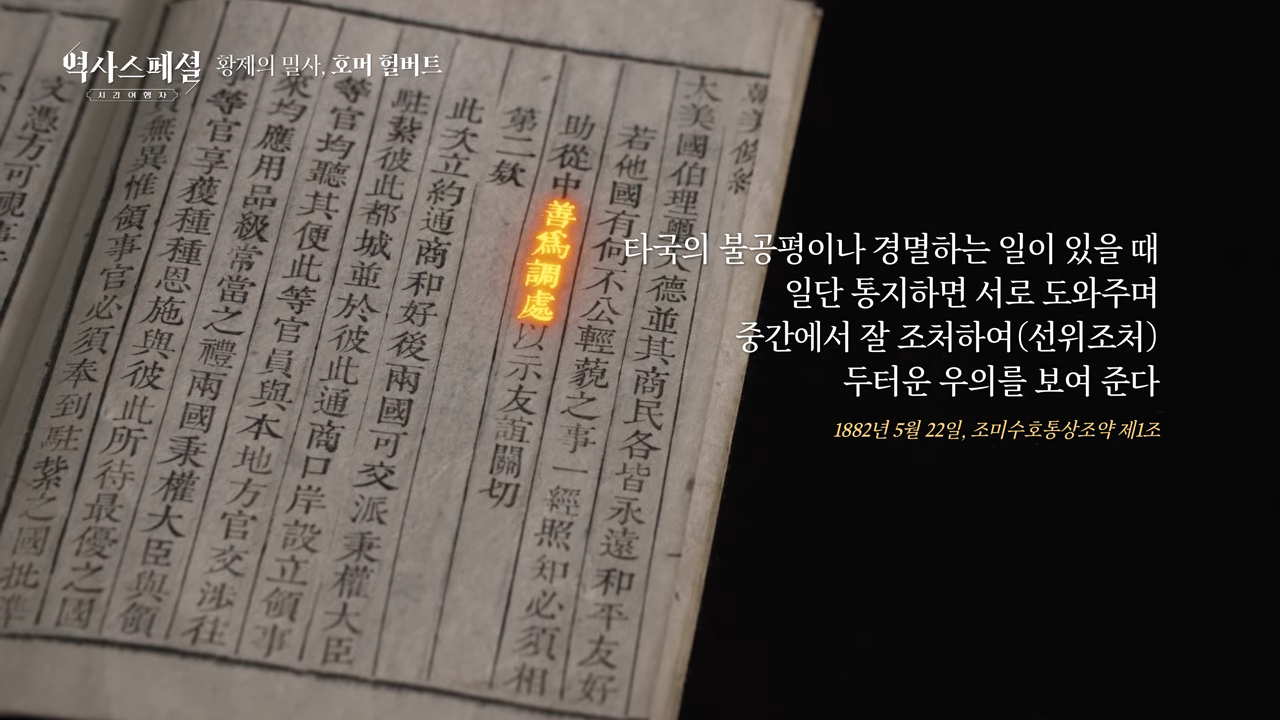 역사스페셜
시간여행자
황제의 밀사, 호머 헐버트
타국의 불공평이나 경멸하는 일이 있을 때
일단 통지하면 서로 도와주며
중간에서 잘 조처하여(선위조처)
두터운 우의를 보여 준다
1882년 5월 22일, 조미수호통상조약 제1조
朝美條約
大美國伯理璽天德並其商民各皆永遠和平友好
若他國有何不公輕藐之事一經照知必須相
助從中善爲調處以示友誼關切
第二欵
此次立約通商和好後兩國可交派秉權大臣
駐紮彼此都城並於彼此通商口岸設立領事
等官均聽其便此等官員與本地方官交涉往
來均應用品級常當之禮兩國秉權大臣與領
事等官享獲種種恩施與彼此所待最優之國
無異惟領事官必須奉到駐紮之國批準
文憑方可視事